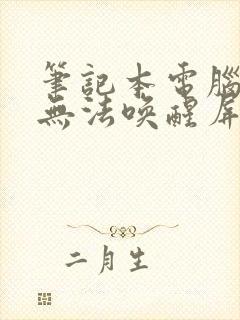 筆記本電腦
無法喚醒屏
二月生